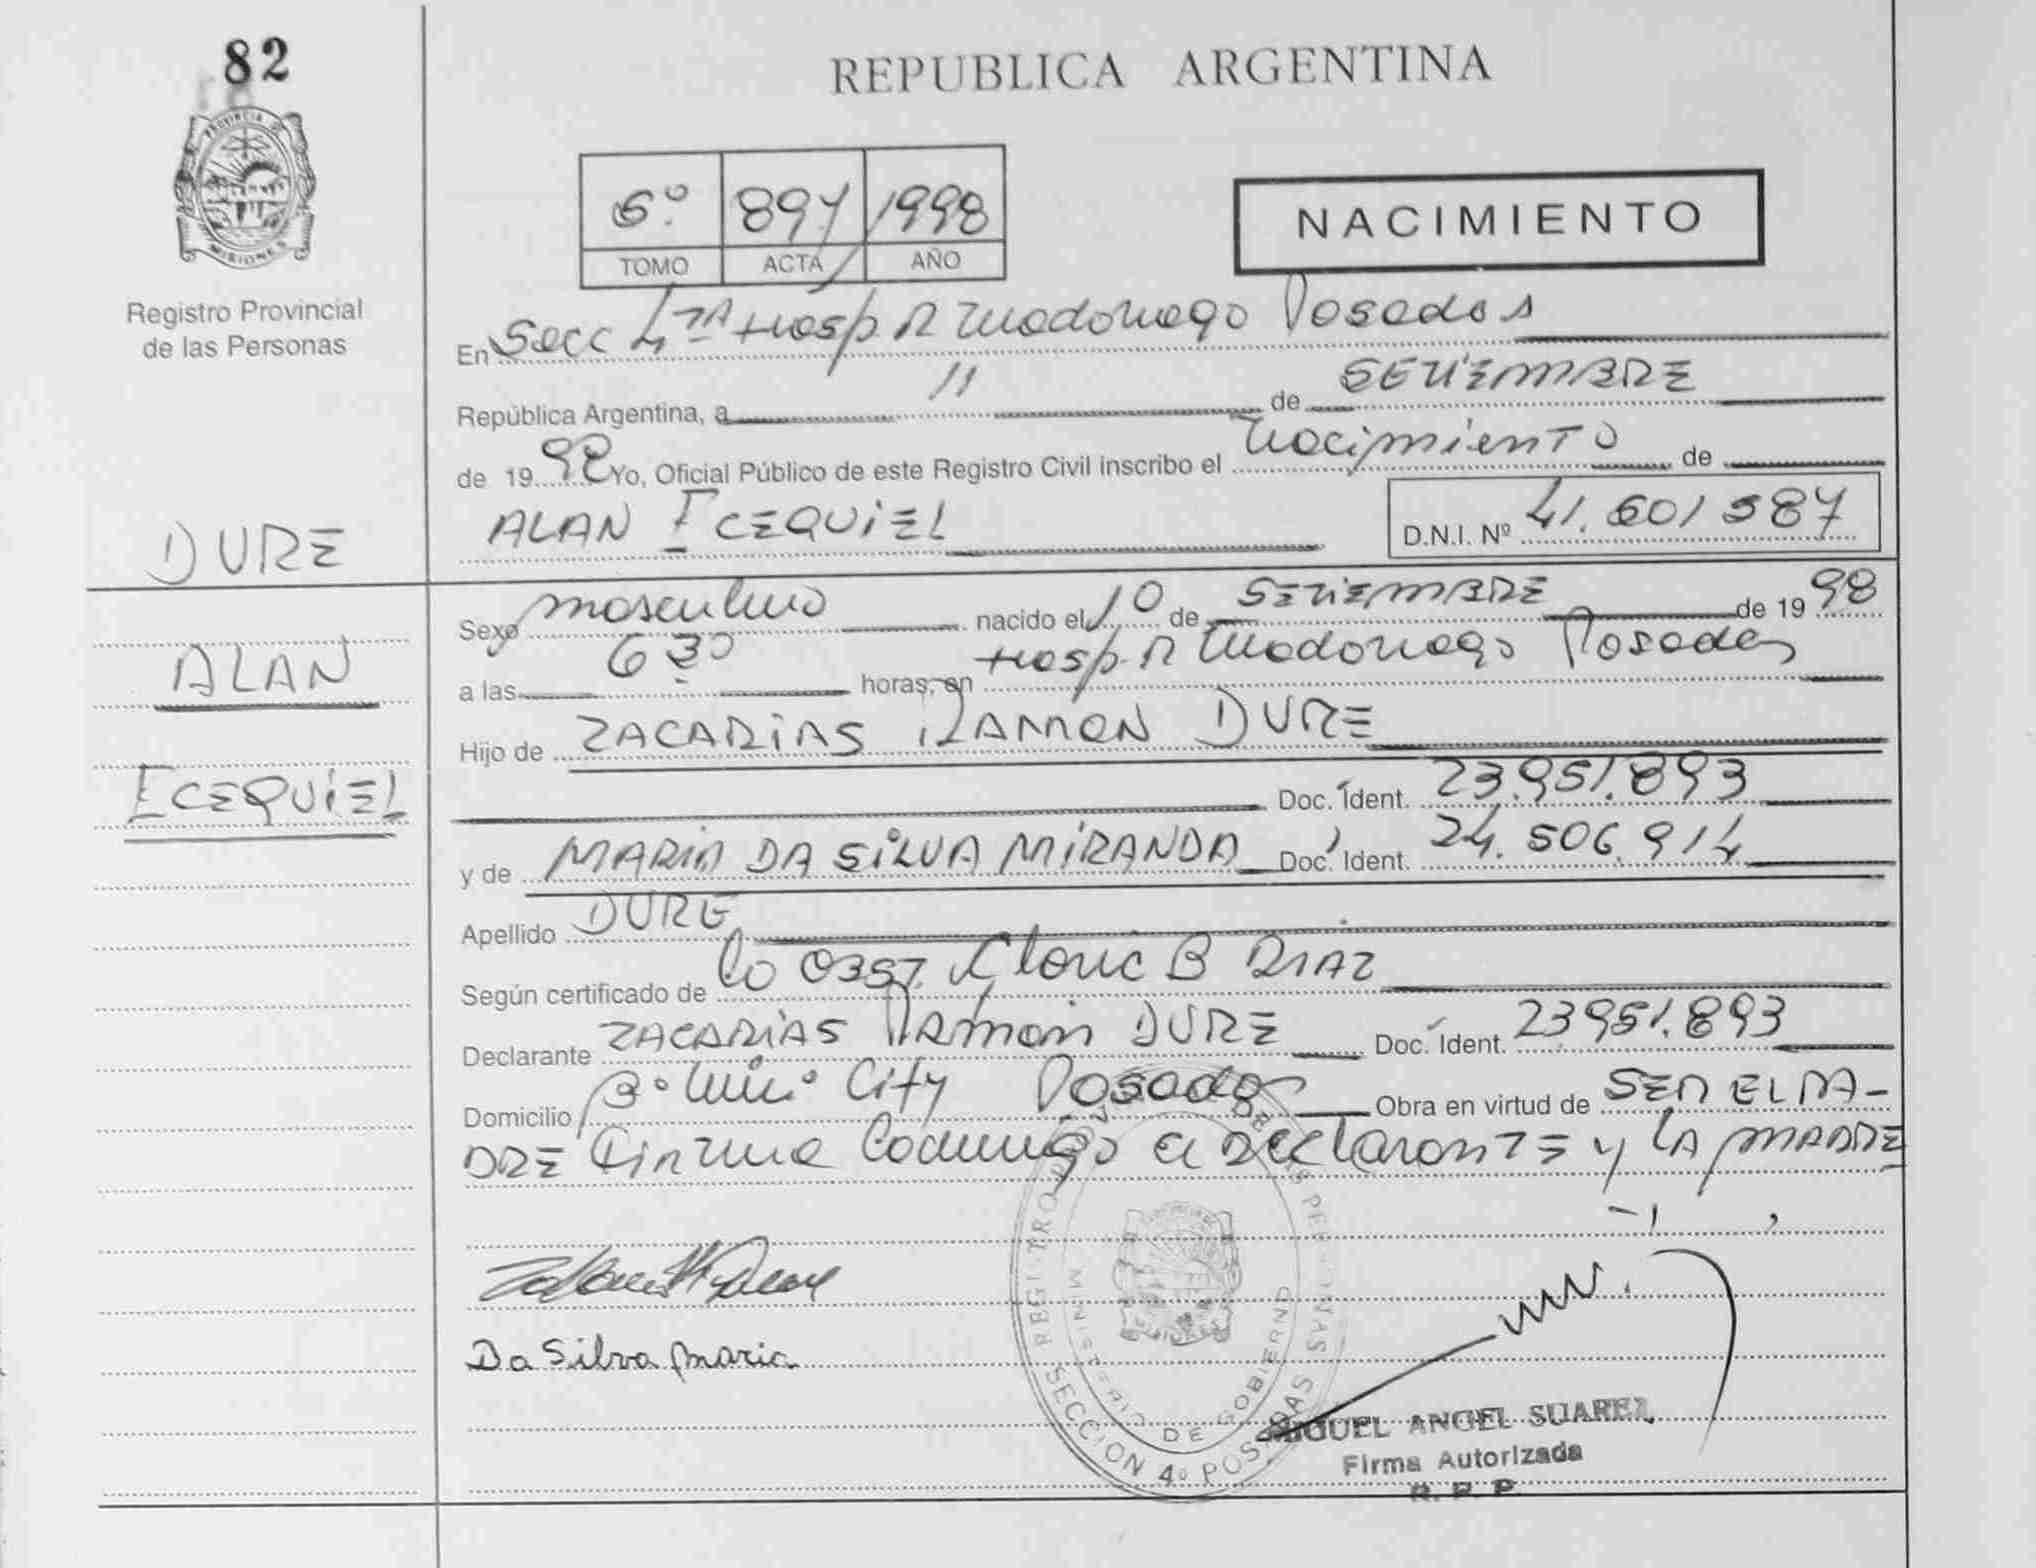 82
REPUBLICA ARGENTINA
PROVINCIA DE
MISIONES
Registro Provincial
de las Personas
6º 897 1998
TOMO ACTA AÑO
NACIMIENTO
En Secc 4ta Hosp. R Madariaga Posadas
República Argentina, a 11 de SETIEMBRE
de 1998 Yo, Oficial Público de este Registro Civil inscribo el Nacimiento de
ALAN ECEQUiEL D.N.I. Nº 41.601587
DURE
ALAN
ECEQUiEL
Sexo masculino nacido el 10 de SETIEMBRE de 1998
a las 6 30 horas, en Hosp. R Madariaga Posadas
Hijo de ZACARIAS RAMON DURE
Doc. Ident. 23.951.893
y de MARIA DA SiLVA MiRANDA Doc. Ident. 24.506.914
Apellido DURE
Según certificado de 0357 B DIAZ
Declarante ZACARIAS Ramon DURE Doc. Ident. 23951.893
Domicilio Bº City Posadas Obra en virtud de SER EL PA-
DRE Firma Conmigo el Declarante y LA MADRE
Da Silva Maria
REGISTRO PROVINCIAL DE LAS PERSONAS
MINISTERIO DE GOBIERNO
SECCION 4º POSADAS
MIGUEL ANGEL SUAREZ
Firma Autorizada
R. P. P